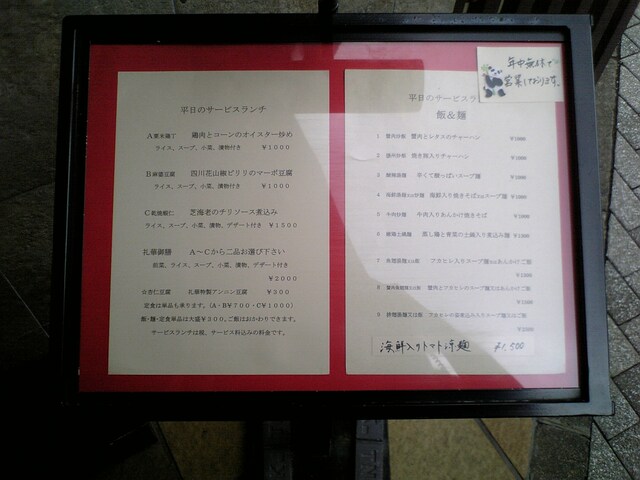 平日のサービスランチ
A 粟米鶏丁 鶏肉とコーンのオイスター炒め
ライス、スープ、小菜、漬物付き ¥1000
B 麻婆豆腐 四川花山椒ピリリのマーボ豆腐
ライス、スープ、小菜、漬物付き ¥1000
C 乾焼蝦仁 芝海老のチリソース煮込み
ライス、スープ、小菜、漬物、デザート付き ¥1500
礼華御膳 A～Cから二品お選び下さい
前菜、ライス、スープ、小菜、漬物、デザート付き
¥2000
☆杏仁豆腐 礼華特製アンニン豆腐 ¥300
定食は単品も承ります。(A・B¥700・C¥1000)
飯・麺・定食単品は大盛¥200、ご飯はおかわりできます。
サービスランチは税、サービス料込みの料金です。
年中無休で
営業しております。
平日のサービスラン
飯&麺
1 蟹肉炒飯 蟹肉とレタスのチャーハン ¥1000
2 焼き豚入りチャーハン ¥1000
3 酸辣湯麺 辛くて酸っぱいスープ麺 ¥1000
4 海鮮入り焼きそばorスープ麺 ¥1000
5 牛肉炒麺 牛肉入りあんかけ焼きそば ¥1000
6 蒸し鶏と青菜の土鍋入り煮込み麺 ¥1000
7 フカヒレ入りスープ麺orあんかけご飯
¥1500
8 蟹肉とフカヒレのスープ麺又はあんかけご飯
9 フカヒレの姿煮込み入りスープ麺又はご飯
海鮮入りトマト涼麺 ¥1,500